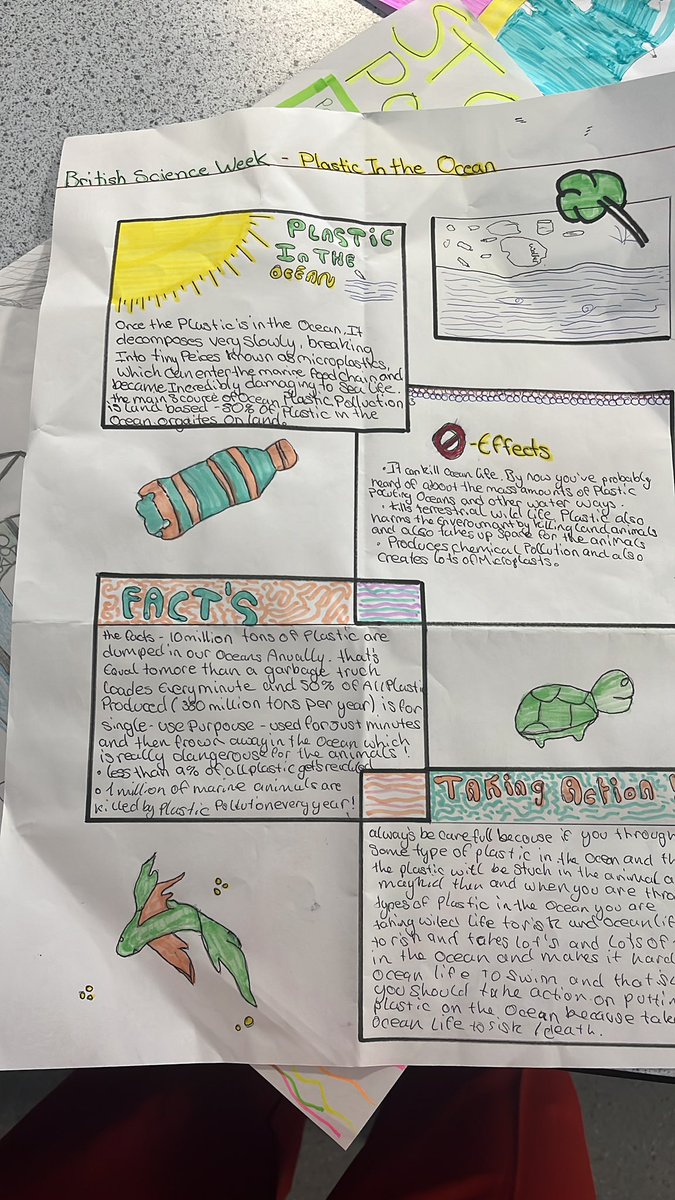 British Science Week - Plastic In the Ocean
PLASTIC
IN THE
OCEAN
Once the Plastic is in the Ocean. It
decomposes very slowly, breaking
Into tiny Peices known as microplastics,
which can enter the marine food chain and
became Incredibly damaging to Sea life.
the main scource of Ocean Plastic Pollution
is land based - 80% of Plastic in the
Ocean orgaites On land.
-Effects
• It can kill Ocean life. By now you've probably
heard of about the mass amounts of Plastic
Polluting Oceans and other water ways.
• Kills terrestrial wild life. Plastic also
harms the Enveroumant by killing land animals
and also takes up space for the animals
• Produces chemical Pollution and also
creates lots of Microplasts.
FACT'S
the facts - 10 million tons of Plastic are
dumped in our Oceans Anually. that's
Equal to more than a garbage truck
loades Every minute and 50% of All Plastic
Produced (380 million tons per year) is for
single-use Purpouse - used for Just minutes
and then frown away in the Ocean which
is really dangerouse for the animals!
• less than 9% of all plastic gets recycled
• 1 million of marine animals are
killed by Plastic Pollution every year!
Taking Action
always be carefull because if you through
some type of plastic in the Ocen and th
the plastic will be stuch in the animal a
may kill them and when you are thro
types of Plastic in the Ocean you are
taking wiled life to risk and Ocean lif
to rish and takes lot's and lots of
in the Ocean and makes it hard
Ocean life To swim and that's
you should take action on putti
plastic on the Ocean because take
Ocean life to risk / death.